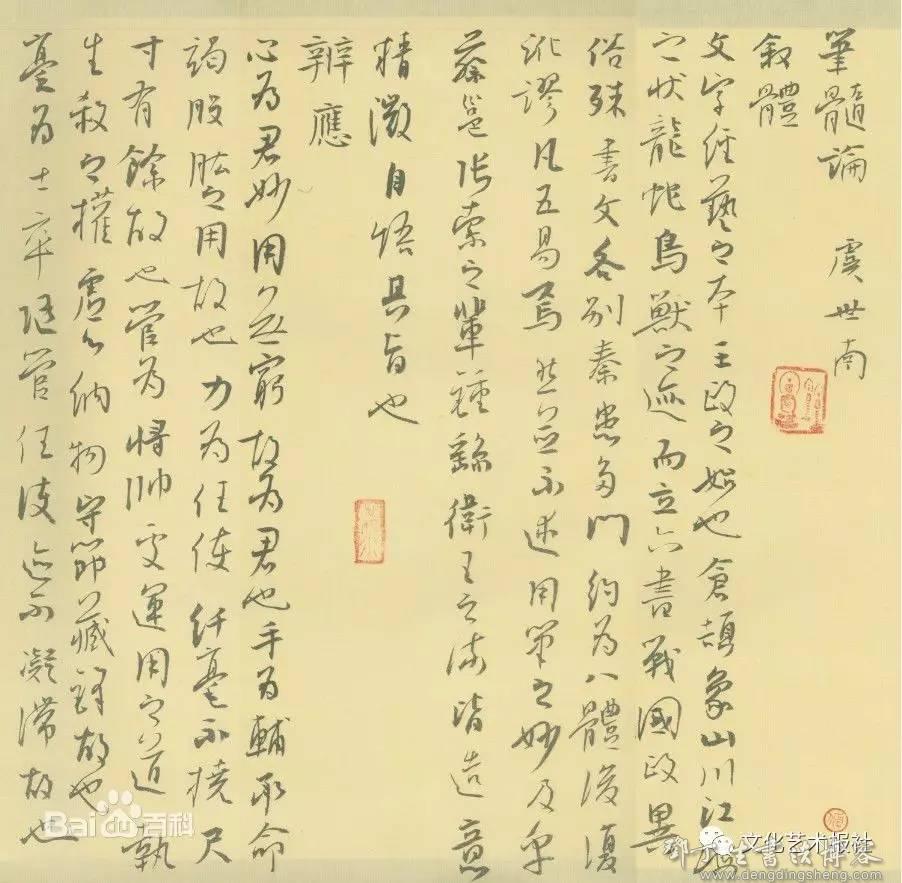 筆髓論 虞世南
叙體
文字經藝之本王政之始也倉頡象山川江海
之狀龍蛇鳥獸之迹而立六書戰國政異
俗殊書文各別秦患多門約為八體後復
訛謬凡五易焉然並不述用筆之妙及乎
蔡邕張索之輩鍾繇衛王之流皆造意
精微自悟其旨也
辨應
心為君妙用無窮故為君也手為輔承命
竭股肱之用故也力為任使纖毫不撓尺
寸有餘故也管為將帥處運用之道執
生殺之權虛心納物守節藏鋒故也
毫為士卒隨管任使迹不凝滯故也
Bai百科
文化艺术报社
www.dengdingsheng.com